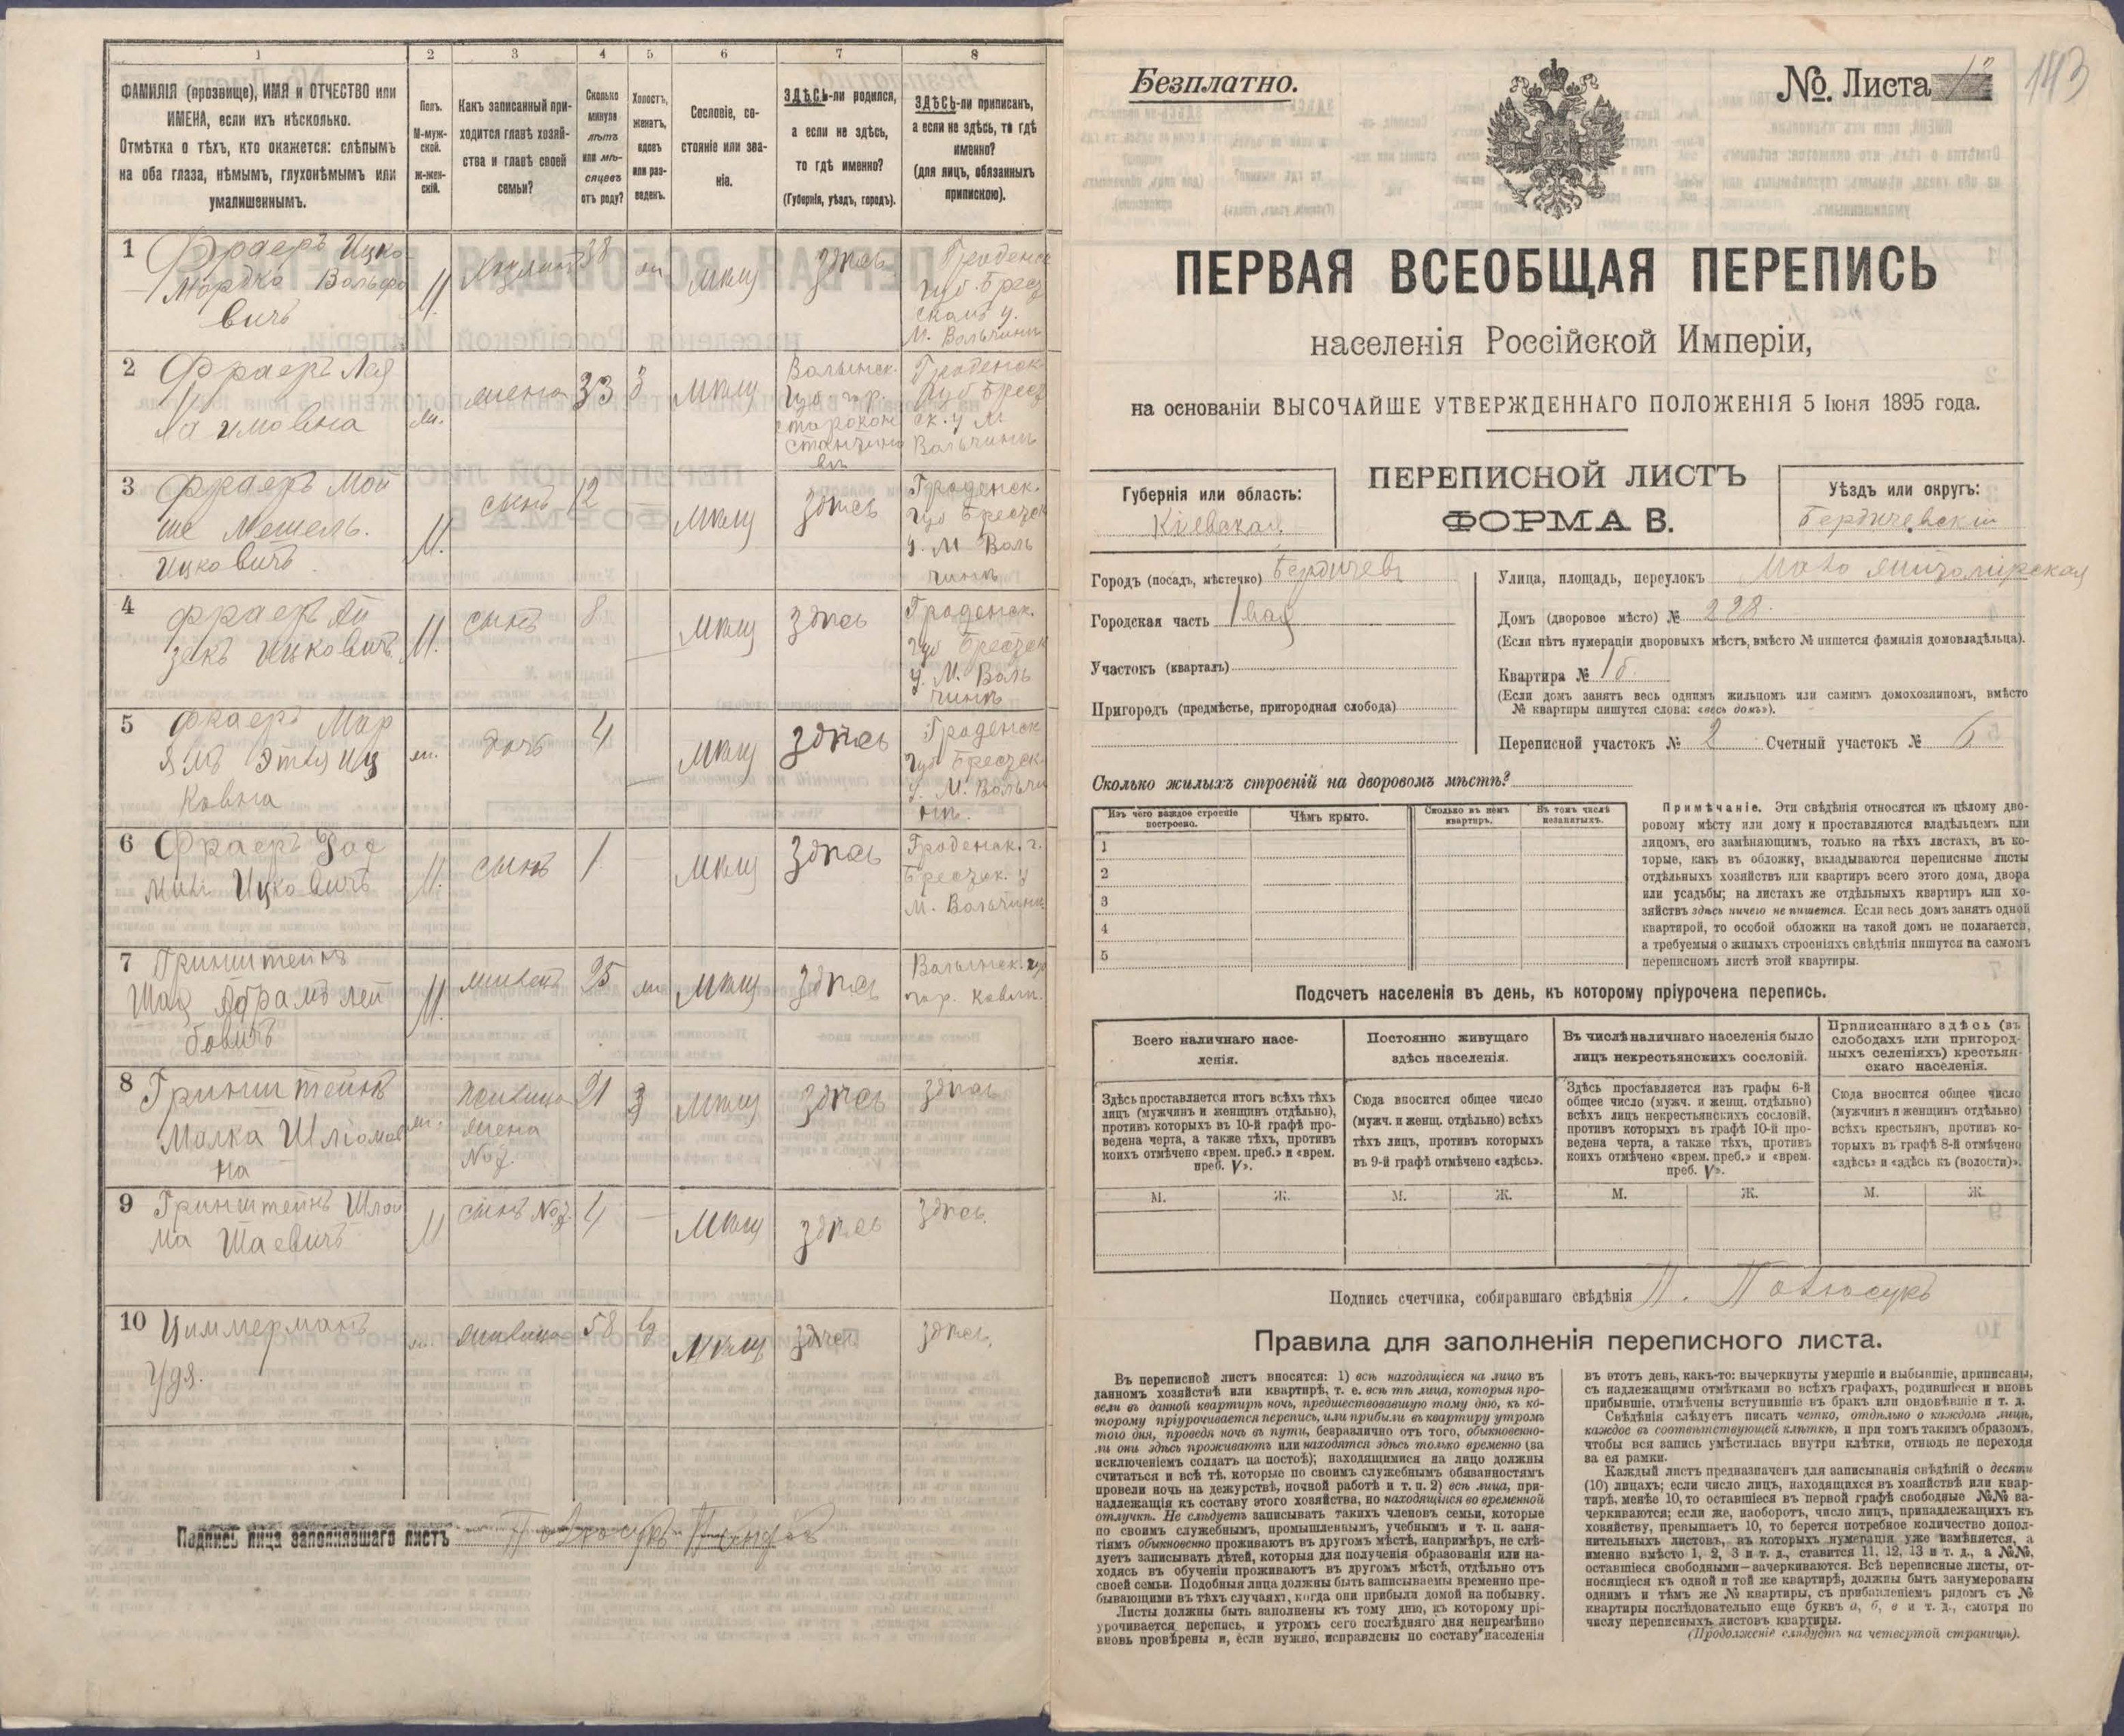 1
2
3
4
5
6
7
8
ФАМИЛІЯ (прозвище), ИМЯ и ОТЧЕСТВО или
ИМЕНА, если ихъ нѣсколько.
Отмѣтка о тѣхъ, кто окажется: слѣпымъ
на оба глаза, нѣмымъ, глухонѣмымъ или
умалишеннымъ.
Полъ.
М-муж-
ской.
Ж-жен-
скій.
Какъ записанный при-
ходится главѣ хозяй-
ства и главѣ своей
семьи?
Сколько
минуло
лѣтъ
или мѣ-
сяцевъ
отъ роду?
Холостъ,
женатъ,
вдовъ
или раз-
веденъ.
Сословіе, со-
стояніе или зва-
ніе.
ЗДѢСЬ-ли родился,
а если не здѣсь,
то гдѣ именно?
(Губернія, уѣздъ, городъ).
ЗДѢСЬ-ли приписанъ,
а если не здѣсь, то гдѣ
именно?
(для лицъ, обязанныхъ
припискою).
1 Фраеръ Ицко-
Мордко Вольфо
вичъ
М.
38
мѣщ
здѣсь
Гроденск
губ. Брест
скаго у.
М. Вольчинъ
2 Фраеръ Лея
Хаимовна
ж.
жена
33
з
мѣщ
Волынск.
губ. гор.
старокон
стантино
вѣ
Гроденск.
губ Брест
ск. у М
Вольчинъ
3 Фраеръ Мой
ше Мешель.
Ицковичъ.
М.
сынъ
12
мѣщ
здѣсь
Гроденск.
губ Брестск
у. М Воль
чинъ
4 Фраеръ Ай
зекъ Ицковичъ.
М.
сынъ
8
мѣщ
здѣсь
Гроденск.
губ Брестск
у. М. Воль
чинъ
5 Фраеръ Мар
ямъ Этля Иц
ковна
ж.
дочь
4
мѣщ
здѣсь
Гроденск
губ Брестск.
у. М. Вольчи
нъ.
6 Фраеръ
Ицковичъ
М.
сынъ
1
мѣщ
здѣсь
Гроденск. г.
Брестск. у
М. Вольчинъ
7 Гринштейнъ
Шая Абрамъ Лей
бовичъ
М.
жилецъ
25
жн
мѣщ
здѣсь
Волынск. губ
гор. Ковль.
8 Гринштейнъ
Малка Шліомов
на
ж.
жилица
жена
№ 7.
21
з
мѣщ
здѣсь
здѣсь
9 Гринштейнъ Шлой
ма Шаевичъ
М
сынъ № 7.
4
мѣщ
здѣсь
здѣсь.
10 Циммерманъ
Удя.
ж.
жилица
58
вд
мѣщ
здѣсь
здѣсь.
Подпись лица заполнявшаго листъ
Безплатно.
№. Листа
143
ПЕРВАЯ ВСЕОБЩАЯ ПЕРЕПИСЬ
населенія Россійской Имперіи,
на основаніи ВЫСОЧАЙШЕ УТВЕРЖДЕННАГО ПОЛОЖЕНІЯ 5 Іюня 1895 года.
Губернія или область:
Кіевская.
ПЕРЕПИСНОЙ ЛИСТЪ
ФОРМА В.
Уѣздъ или округъ:
Бердичевскій
Городъ (посадъ, мѣстечко) Бердичевъ
Городская часть 1вая
Участокъ (кварталъ)
Пригородъ (предмѣстье, пригородная слобода)
Улица, площадь, переулокъ Мало Житомірская
Домъ (дворовое мѣсто) № 228.
(Если нѣтъ нумераціи дворовыхъ мѣстъ, вмѣсто № пишется фамилія домовладѣльца).
Квартира № 1б
(Если домъ занятъ весь однимъ жильцомъ или самимъ домохозяиномъ, вмѣсто
№ квартиры пишутся слова: «весь домъ»).
Переписной участокъ № 2 Счетный участокъ № 6
Сколько жилыхъ строеній на дворовомъ мѣстѣ?
Изъ чего каждое строеніе
построено.
Чѣмъ крыто.
Сколько въ немъ
квартиръ.
Въ томъ числѣ
незанятыхъ.
1
2
3
4
5
Примѣчаніе. Эти свѣдѣнія относятся къ цѣлому дво-
ровому мѣсту или дому и проставляются владѣльцемъ или
лицомъ, его замѣняющимъ, только на тѣхъ листахъ, въ ко-
торые, какъ въ обложку, вкладываются переписные листы
отдѣльныхъ хозяйствъ или квартиръ всего этого дома, двора
или усадьбы; на листахъ же отдѣльныхъ квартиръ или хо-
зяйствъ здѣсь ничего не пишется. Если весь домъ занятъ одной
квартирой, то особой обложки на такой домъ не полагается,
а требуемыя о жилыхъ строеніяхъ свѣдѣнія пишутся на самомъ
переписномъ листѣ этой квартиры.
Подсчетъ населенія въ день, къ которому пріурочена перепись.
Всего наличнаго насе-
ленія.
Постоянно живущаго
здѣсь населенія.
Въ числѣ наличнаго населенія было
лицъ некрестьянскихъ сословій.
Приписаннаго здѣсь (въ
слободахъ или пригород-
ныхъ селеніяхъ) крестьян-
скаго населенія.
Здѣсь проставляется итогъ всѣхъ тѣхъ
лицъ (мужчинъ и женщинъ отдѣльно),
противъ которыхъ въ 10-й графѣ про-
ведена черта, а также тѣхъ, противъ
коихъ отмѣчено «врем. преб.» и «врем.
преб. V».
Сюда вносится общее число
(мужч. и женщ. отдѣльно) всѣхъ
тѣхъ лицъ, противъ которыхъ
въ 9-й графѣ отмѣчено «здѣсь».
Здѣсь проставляется изъ графы 6-й
общее число (мужч. и женщ. отдѣльно)
всѣхъ лицъ некрестьянскихъ сословій,
противъ которыхъ въ графѣ 10-й про-
ведена черта, а также тѣхъ, противъ
коихъ отмѣчено «врем. преб.» и «врем.
преб. V».
Сюда вносится общее число
(мужчинъ и женщинъ отдѣльно)
всѣхъ крестьянъ, противъ ко-
торыхъ въ графѣ 8-й отмѣчено
«здѣсь» и «здѣсь къ (волости)».
М. Ж. М. Ж. М. Ж. М. Ж.
Подпись счетчика, собиравшаго свѣдѣнія П.
Правила для заполненія переписного листа.
Въ переписной листъ вносятся: 1) всѣ находящіеся на лицо въ
данномъ хозяйствѣ или квартирѣ, т. е. всѣ тѣ лица, которыя про-
вели въ данной квартирѣ ночь, предшествовавшую тому дню, къ ко-
торому пріурочивается перепись, или прибыли въ квартиру утромъ
того дня, проведя ночь въ пути, безразлично отъ того, обыкновенно-
ли они здѣсь проживаютъ или находятся здѣсь только временно (за
исключеніемъ солдатъ на постоѣ); находящимися на лицо должны
считаться и всѣ тѣ, которые по своимъ служебнымъ обязанностямъ
провели ночь на дежурствѣ, ночной работѣ и т. п. 2) всѣ лица, при-
надлежащія къ составу этого хозяйства, но находящіяся во временной
отлучкѣ. Не слѣдуетъ записывать такихъ членовъ семьи, которые
по своимъ служебнымъ, промышленнымъ, учебнымъ и т. п. заня-
тіямъ обыкновенно проживаютъ въ другомъ мѣстѣ, напримѣръ, не слѣ-
дуетъ записывать дѣтей, которыя для полученія образованія или на-
ходясь въ обученіи проживаютъ въ другомъ мѣстѣ, отдѣльно отъ
своей семьи. Подобныя лица должны быть записываемы временно пре-
бывающими въ тѣхъ случаяхъ, когда они прибыли домой на побывку.
Листы должны быть заполнены къ тому дню, къ которому прі-
урочивается перепись, и утромъ сего послѣдняго дня непремѣнно
вновь провѣрены и, если нужно, исправлены по составу населенія
въ этотъ день, какъ-то: вычеркнуты умершіе и выбывшіе, приписаны,
съ надлежащими отмѣтками во всѣхъ графахъ, родившіеся и вновь
прибывшіе, отмѣчены вступившіе въ бракъ или овдовѣвшіе и т. д.
Свѣдѣнія слѣдуетъ писать четко, отдѣльно о каждомъ лицѣ,
каждое въ соотвѣтствующей клѣткѣ, и при томъ такимъ образомъ,
чтобы вся запись умѣстилась внутри клѣтки, отнюдь не переходя
за ея рамки.
Каждый листъ предназначенъ для записыванія свѣдѣній о десяти
(10) лицахъ; если число лицъ, находящихся въ хозяйствѣ или квар-
тирѣ, менѣе 10, то оставшіеся въ первой графѣ свободные №№ за-
черкиваются; если же, наоборотъ, число лицъ, принадлежащихъ къ
хозяйству, превышаетъ 10, то берется потребное количество допол-
нительныхъ листовъ, въ которыхъ нумерація уже измѣняется, а
именно вмѣсто 1, 2, 3 и т. д., ставится 11, 12, 13 и т. д., а №№,
оставшіеся свободными—зачеркиваются. Всѣ переписные листы, от-
носящіеся къ одной и той же квартирѣ, должны быть занумерованы
однимъ и тѣмъ же № квартиры, съ прибавленіемъ рядомъ съ №
квартиры послѣдовательно еще буквъ а, б, в и т. д., смотря по
числу переписныхъ листовъ квартиры.
(Продолженіе слѣдуетъ на четвертой страницѣ).